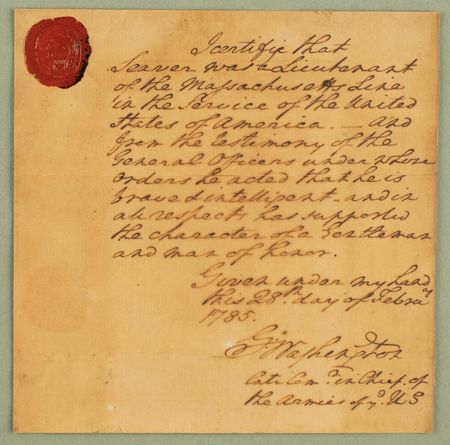 I certifie that
Seaver was a Lieutenant
of the Massachusetts Line
in the Service of the United
States of America. — and
from the testimony of the
General Officers under whose
orders he acted that he is
brave & intelligent - and in
all respects has supported
the character of a Gentleman
and man of honor.
Given under my hand
this 28th. day of Febrʸ
1785.
Gº: Washington
late Comʳ. in Chief of
the Armies of yᵉ. U S